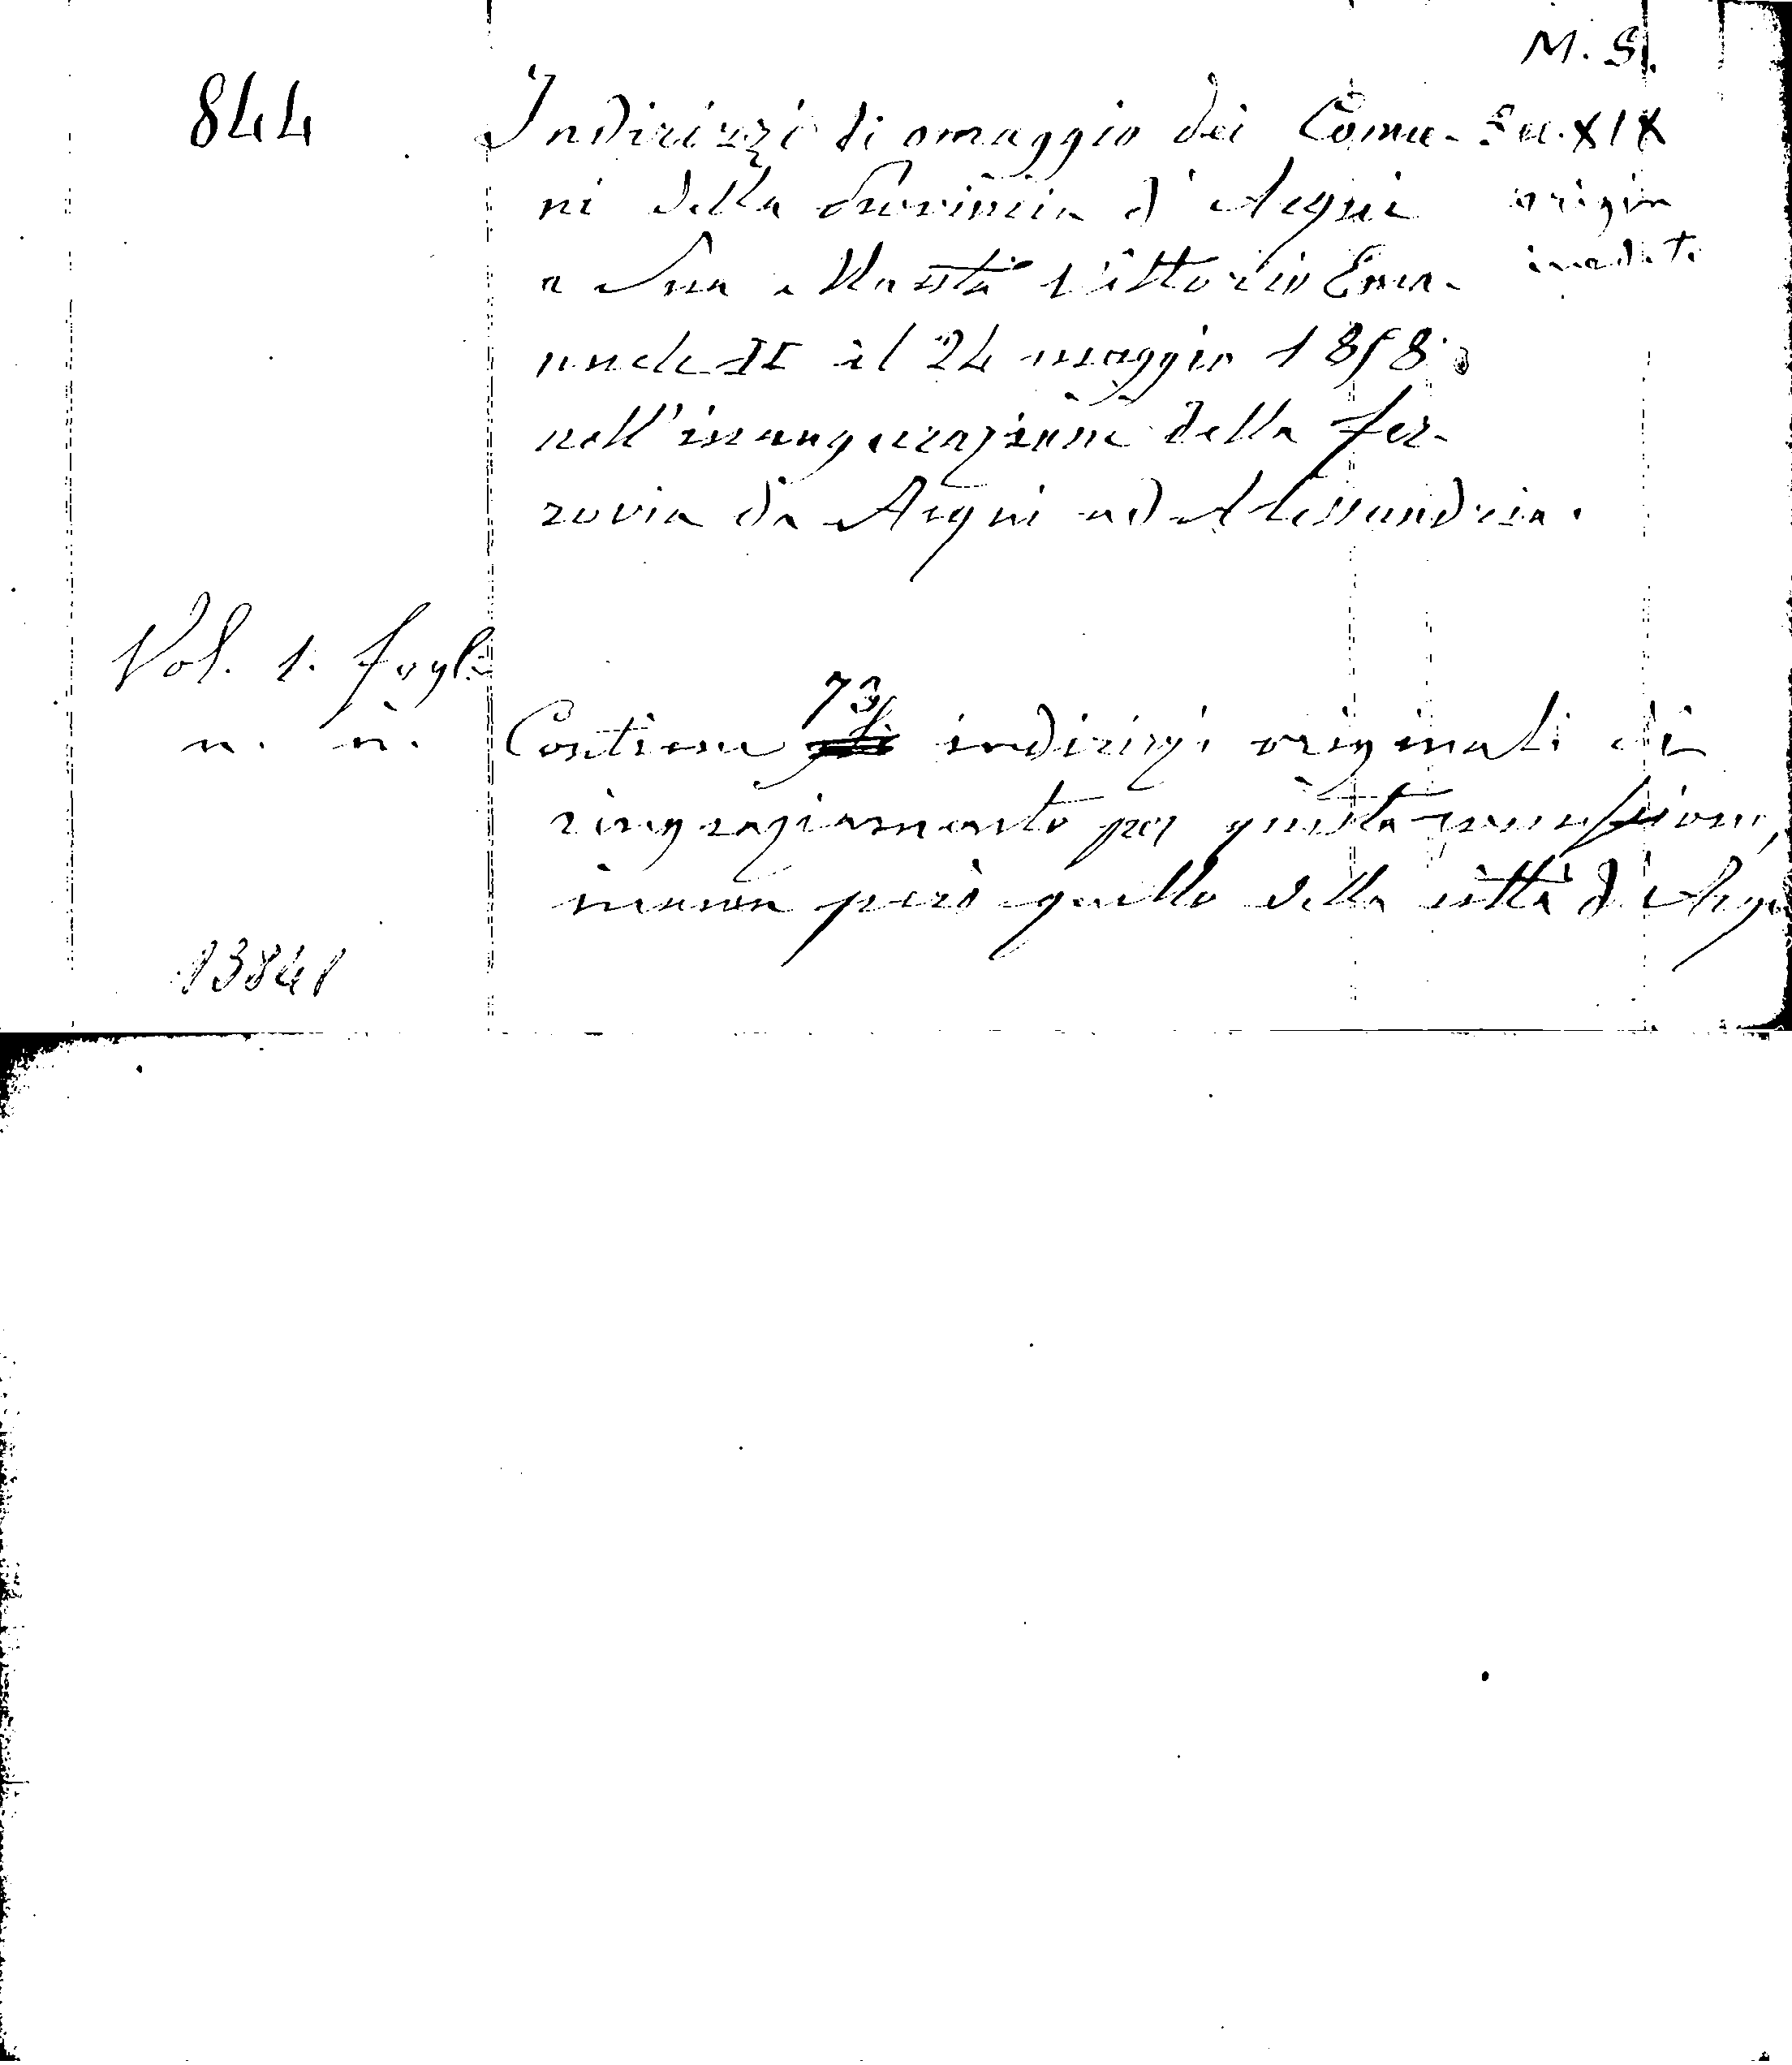 M. S.
844 Indirizzi di omaggio dei Comu- Sec. XIX
ni della Provincia d'Acqui origin
a Sua Maestà Vittorio Ema- inediti
nuele II il 24 maggio 1858
nell'inaugurazione della fer-
rovia da Acqui ad Alessandria.
Vol. 1. fogl:
n. n. Contiene 73 indirizzi originali di
ringraziamento per questa
manca però quello della città d'Acqui
13841